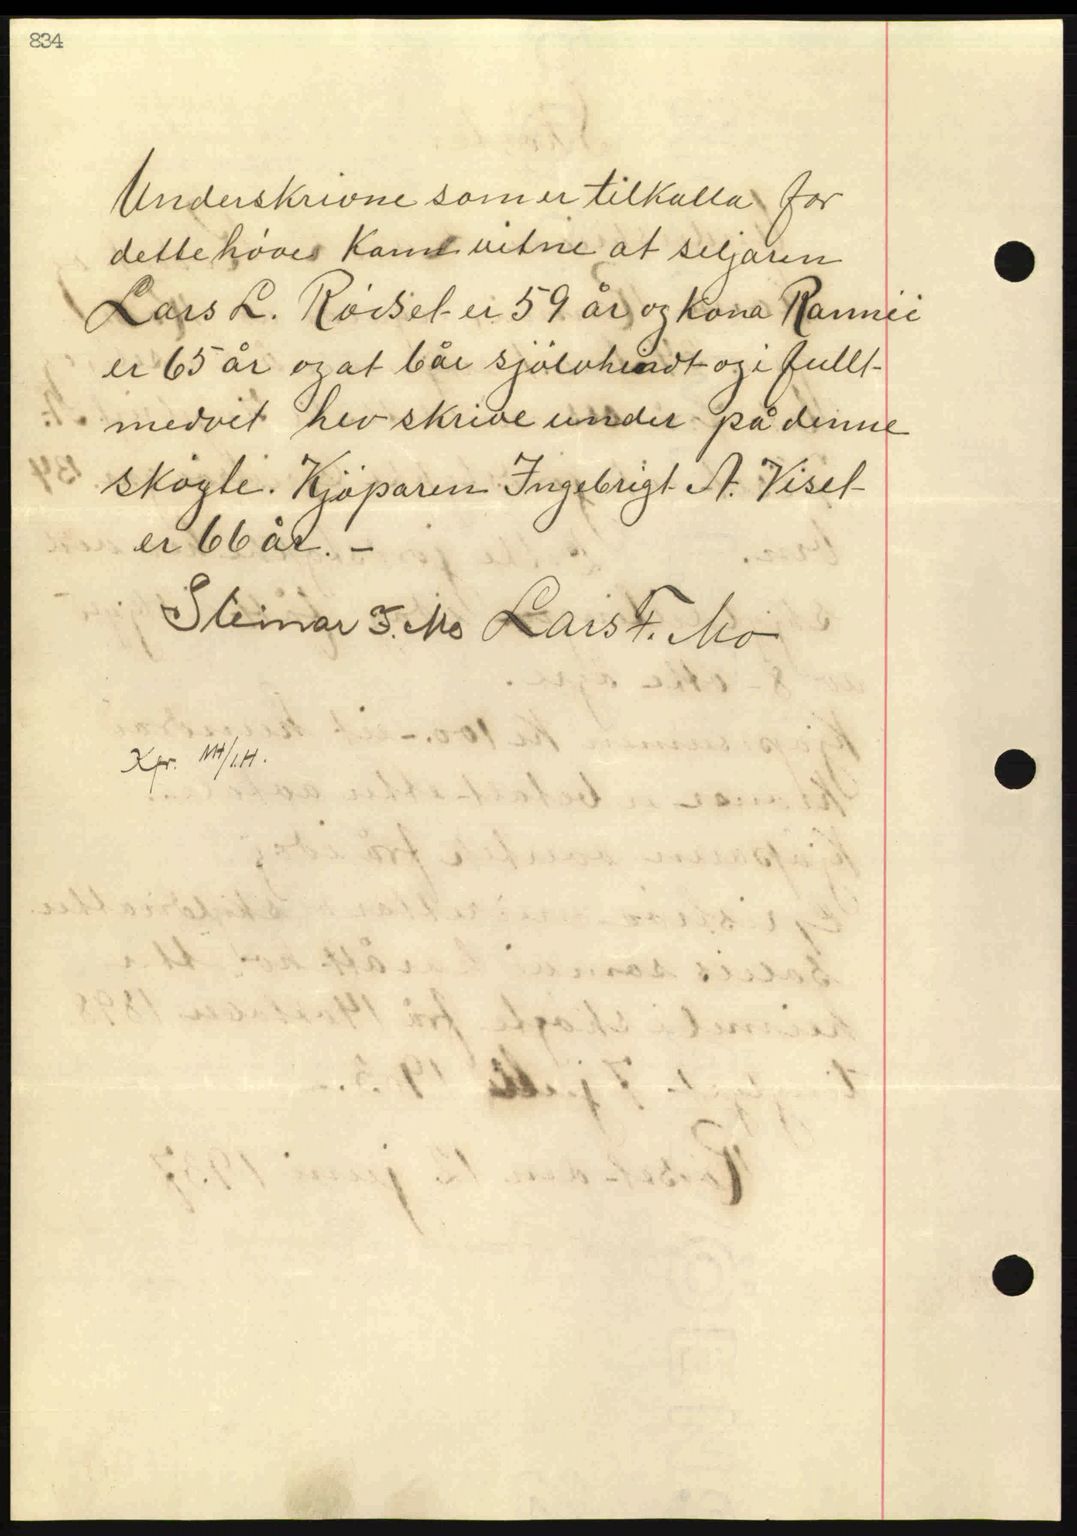 834
Underskrivne som er tilkalla for
dette høves kann vitne at seljaren
Lars L. Röisel er 59 år og kona Rannei
er 65 år og at båe sjölvhendt og i fullt
medvit hev skrive under på denne
sköyte. Kjöparen Ingebrigt A. Visel
er 66 år. –
Steinar F. Mo Lars F. Mo
Kfr. MH/I.H.